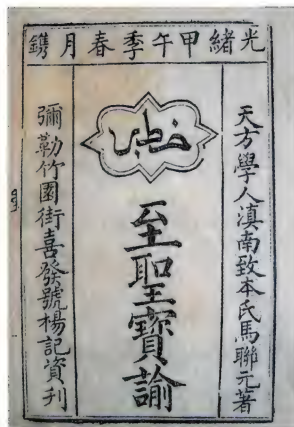 光緒甲午季春月鐫
天方學人滇南致本氏馬聯元著
至聖寶諭
彌勒竹園街喜發號楊記資刊